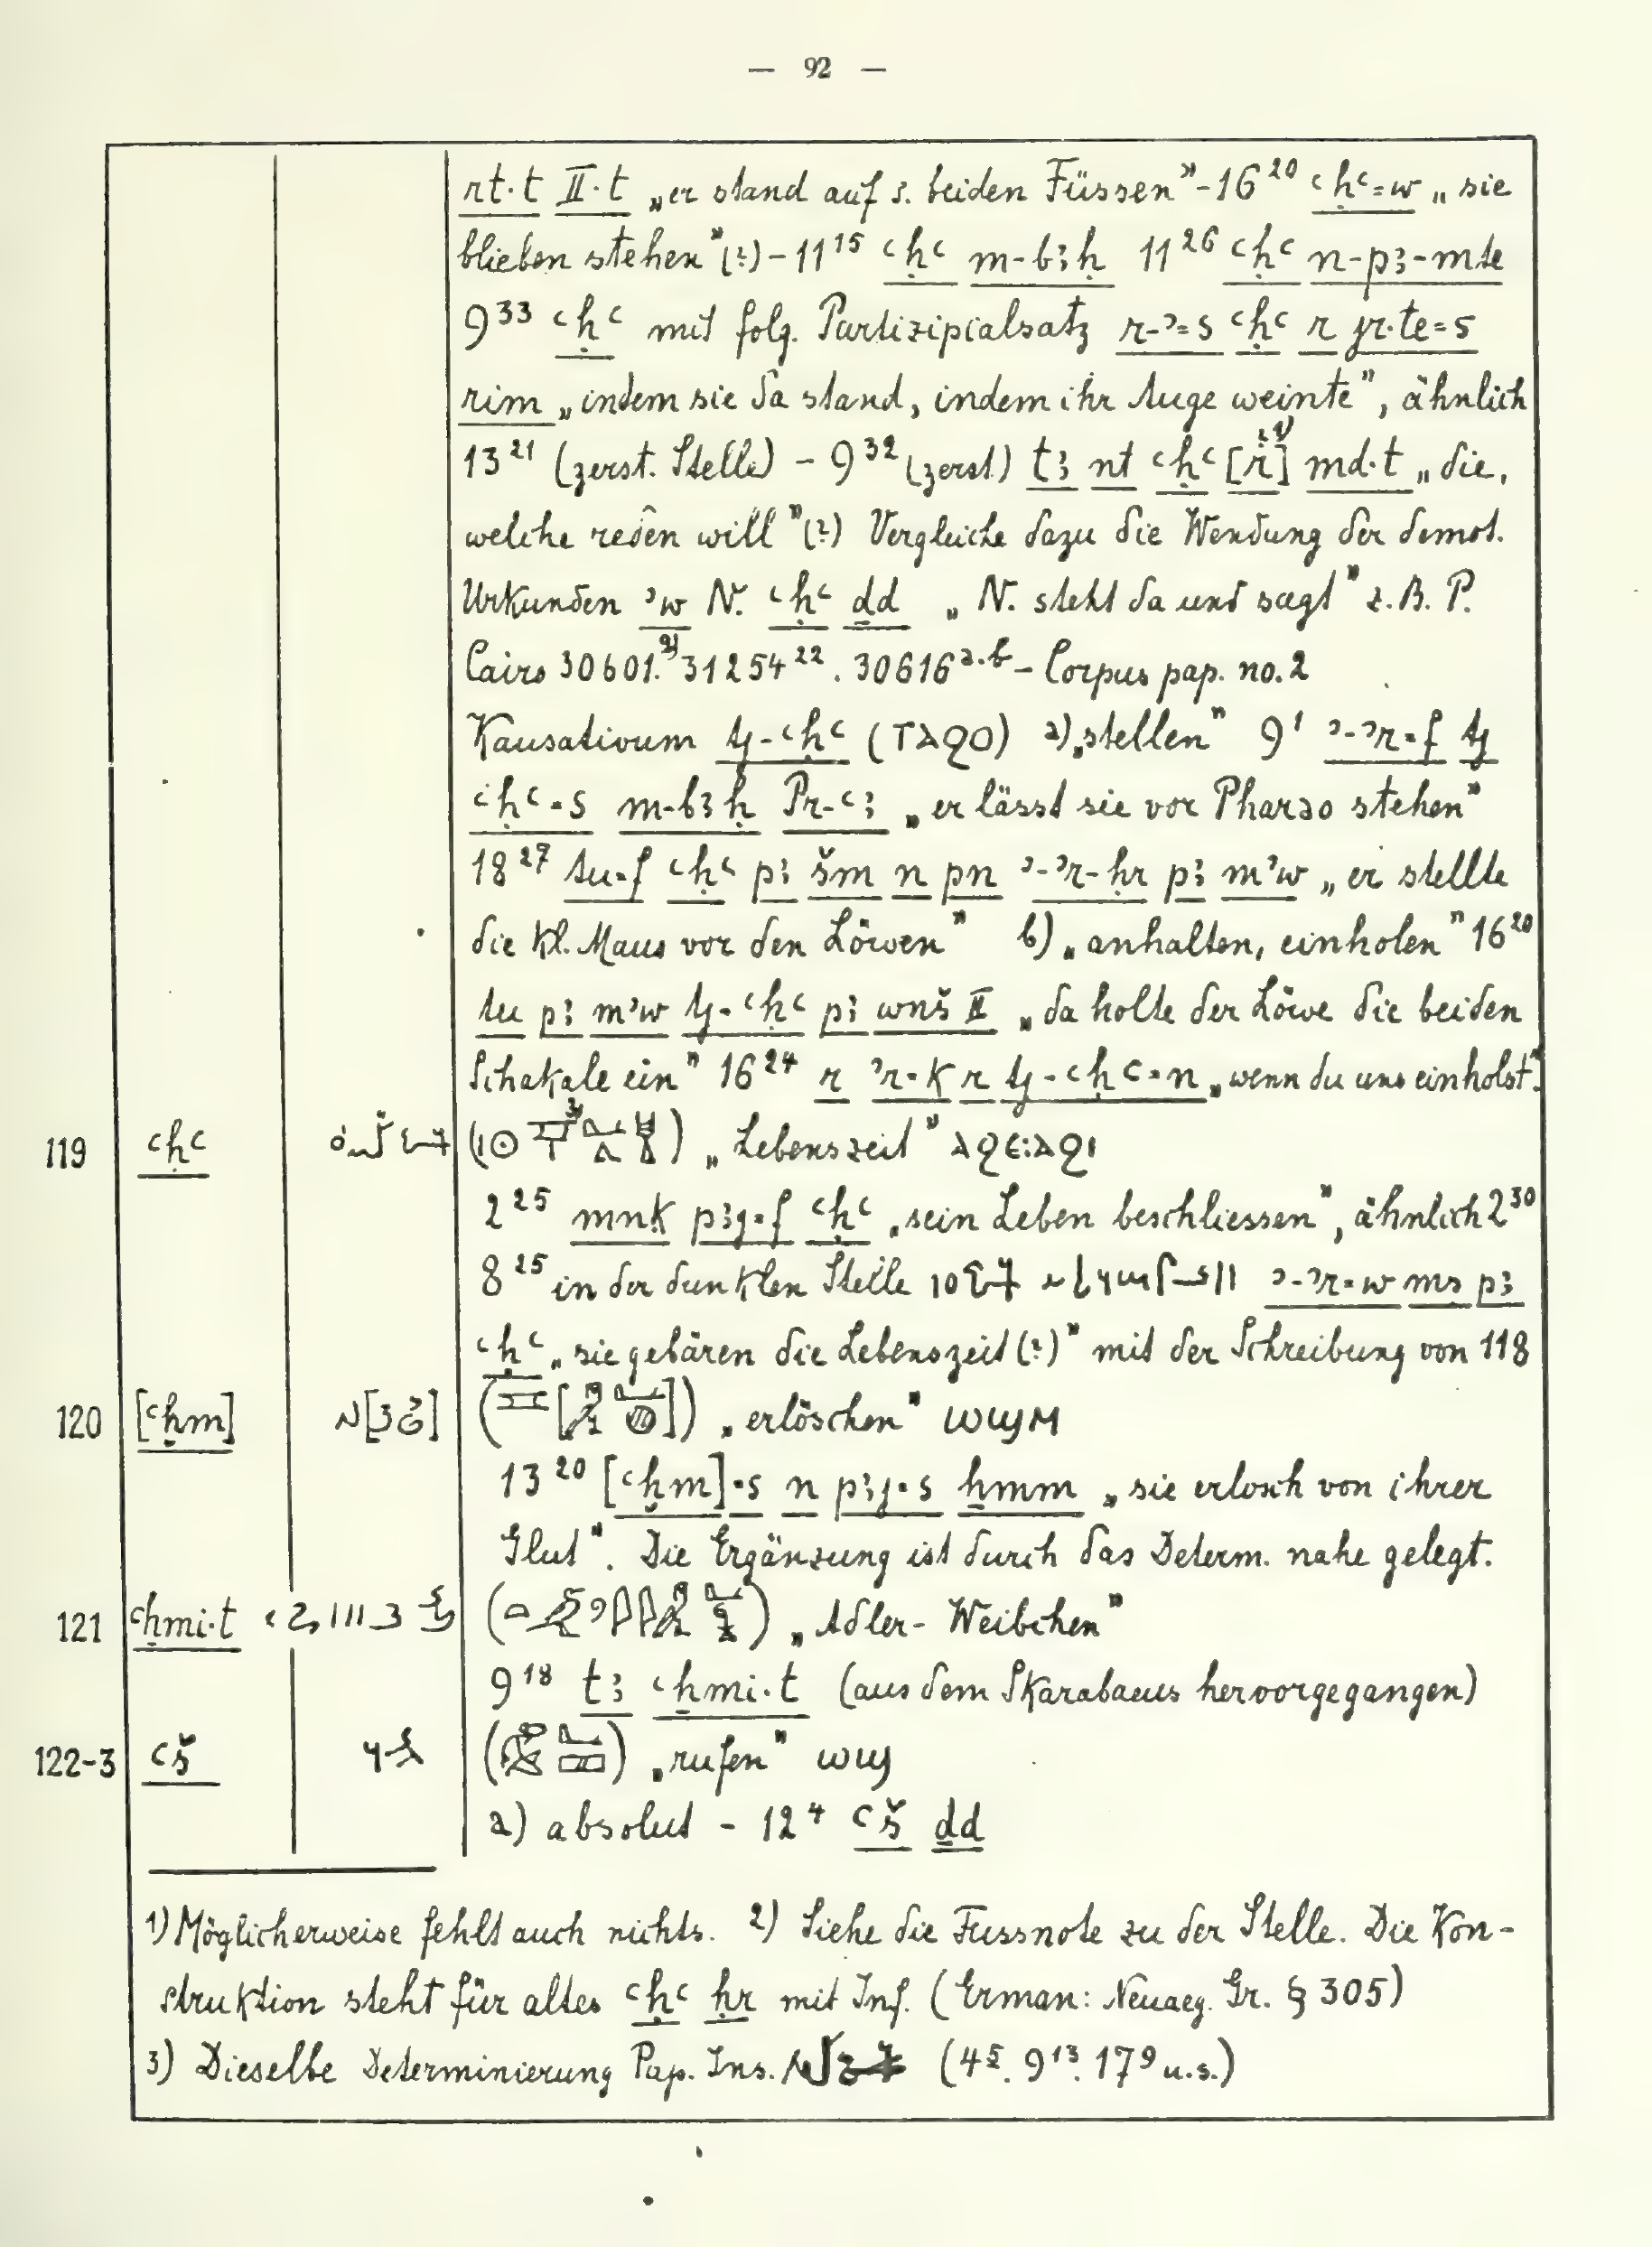 — 92 —
rt·t II·t „er stand auf s. beiden Füssen” - 16²⁰ ꜥḥꜥ=w „sie
blieben stehen” (?) - 11¹⁵ ꜥḥꜥ m-bꜣḥ 11²⁶ ꜥḥꜥ n-pꜣ-mte
9³³ ꜥḥꜥ mit folg. Partizipialsatz r-ʾ=s ꜥḥꜥ r jr·te=s
rim „indem sie da stand, indem ihr Auge weinte”, ähnlich
13²¹ (zerst. Stelle) - 9³² (zerst.) tꜣ nt ꜥḥꜥ [r] ¹⁾ md·t „die,
welche reden will” (?) Vergleiche dazu die Wendung der demot.
Urkunden ʾw N. ꜥḥꜥ ḏd „N. steht da und sagt” z.B. P.
Cairo 30601.²⁾ 31254²². 30616ᵃ·ᵇ - Corpus pap. no. 2
Kausativum tj-ꜥḥꜥ (ⲧⲁϩⲟ) a) „stellen” 9¹ ʾ-ʾr=f tj
ꜥḥꜥ=s m-bꜣḥ Pr-ꜥꜣ „er lässt sie vor Pharao stehen”
18²⁷ tu=f ꜥḥꜥ pꜣ šm n pn ʾ-ʾr-ḥr pꜣ mʾw „er stellte
die kl. Maus vor den Löwen” b) „anhalten, einholen” 16²⁰
tu pꜣ mʾw tj-ꜥḥꜥ pꜣ wnš II „da holte der Löwe die beiden
Schakale ein” 16²⁴ r ʾr=k r tj-ꜥḥꜥ=n „wenn du uns einholst”.
119 ꜥḥꜥ ³⁾ „Lebenszeit” ⲁϩⲉ:ⲁϩⲓ
2²⁵ mnḳ pꜣj=f ꜥḥꜥ „sein Leben beschliessen”, ähnlich 2³⁰
8²⁵ in der dunklen Stelle ʾ-ʾr=w ms pꜣ
ꜥḥꜥ „sie gebären die Lebenszeit (?)” mit der Schreibung von 118
120 [ꜥḫm] „erlöschen” ⲱϣⲙ
13²⁰ [ꜥḫm]=s n pꜣj=s ẖmm „sie erlosch von ihrer
Glut”. Die Ergänzung ist durch das Determ. nahe gelegt.
121 ꜥẖmi·t „Adler-Weibchen”
9¹⁸ tꜣ ꜥẖmi·t (aus dem Skarabaeus hervorgegangen)
122-3 ꜥš „rufen” ⲱϣ
a) absolut - 12⁴ ꜥš ḏd
1) Möglicherweise fehlt auch nichts. 2) Siehe die Fussnote zu der Stelle. Die Kon-
struktion steht für altes ꜥḥꜥ ḥr mit Inf. (Erman: Neuaeg. Gr. § 305)
3) Dieselbe Determinierung Pap. Ins. (4⁵. 9¹³. 17⁹ u.s.)